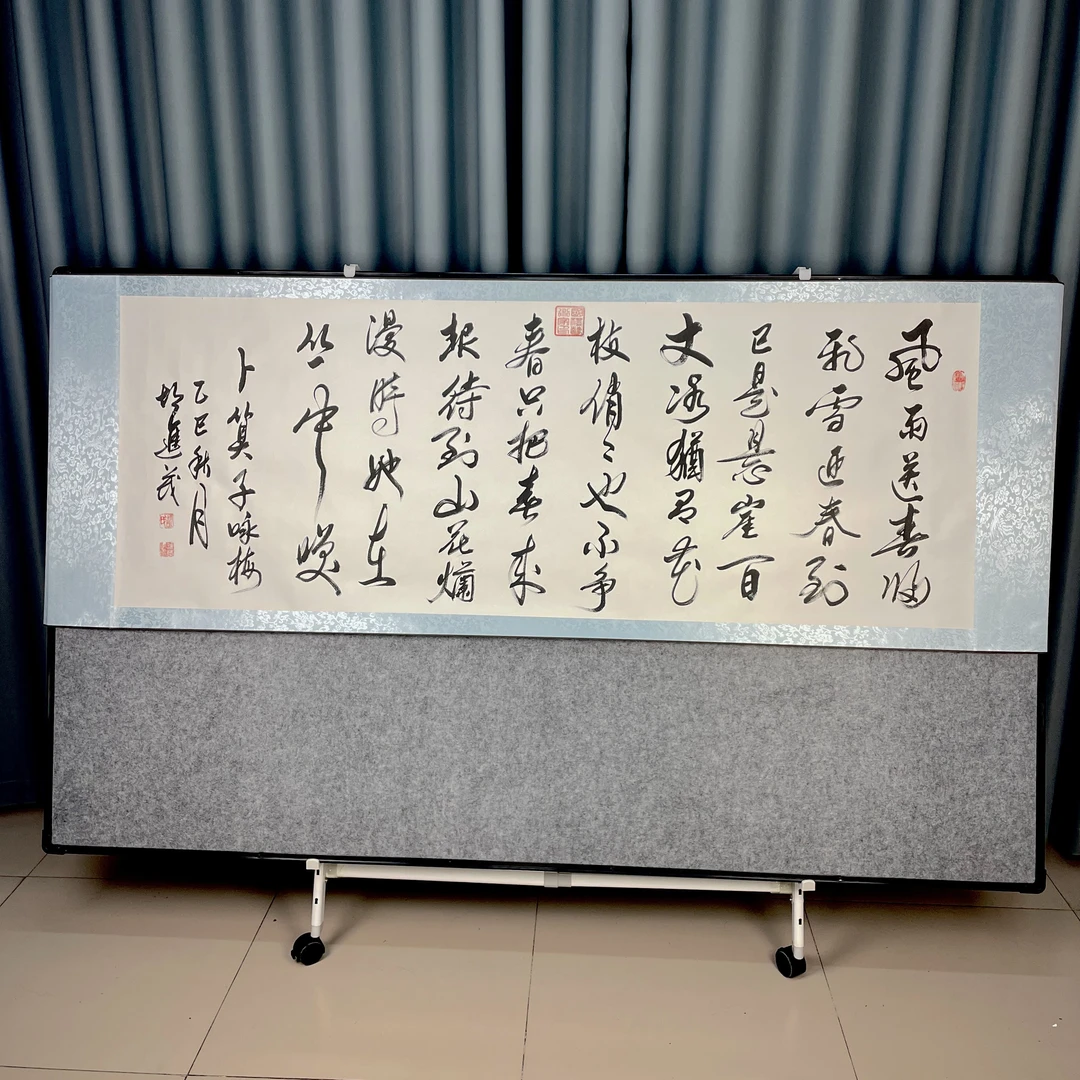 風雨送春归
飛雪迎春到
已是悬崖百
丈冰猶有花
枝俏〻也不争
春只把春来
报待到山花爛
漫時她在
丛中笑
卜算子咏梅
乙巳秋月
胡進茂